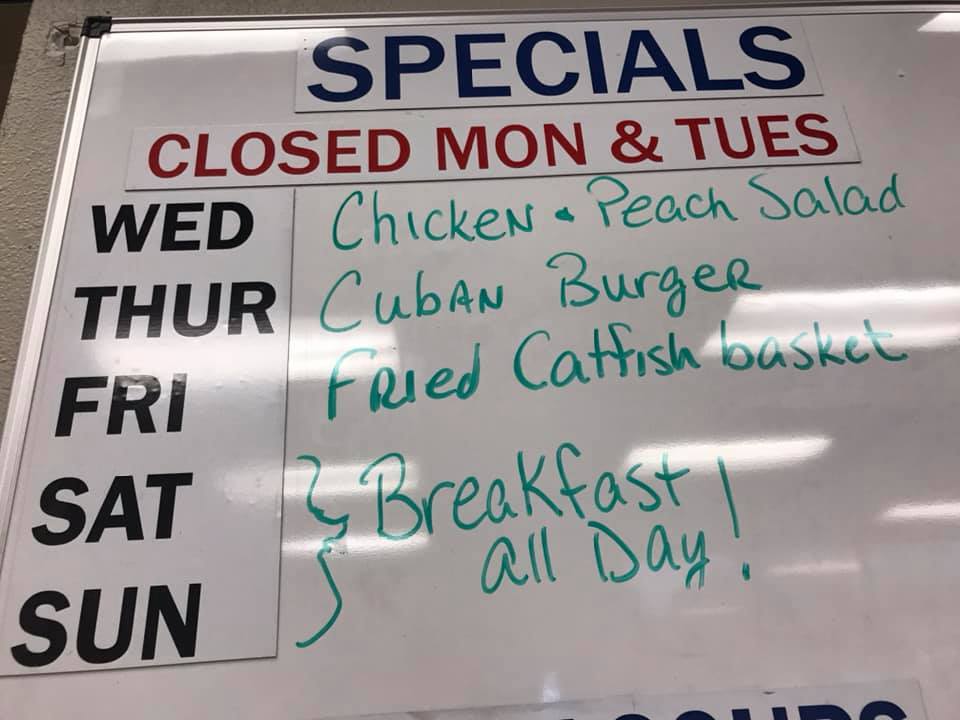 SPECIALS
CLOSED MON & TUES
WED Chicken & Peach Salad
THUR Cuban Burger
FRI Fried Catfish basket
SAT Breakfast
all Day!
SUN